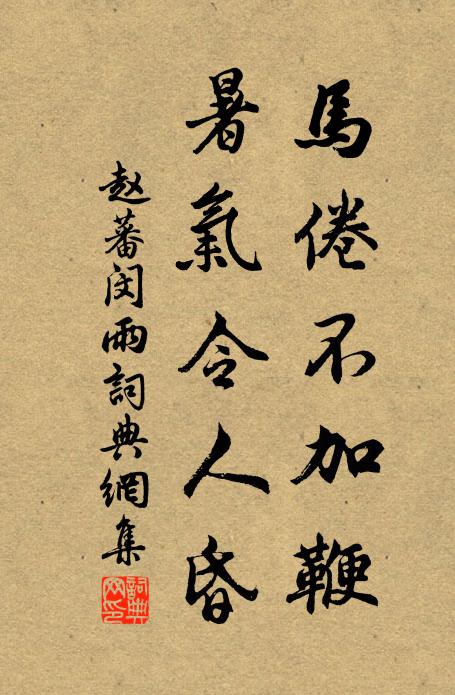 馬倦不加鞭
暑氣令人昏
赵蕃闵雨詞典網集
詞典网印